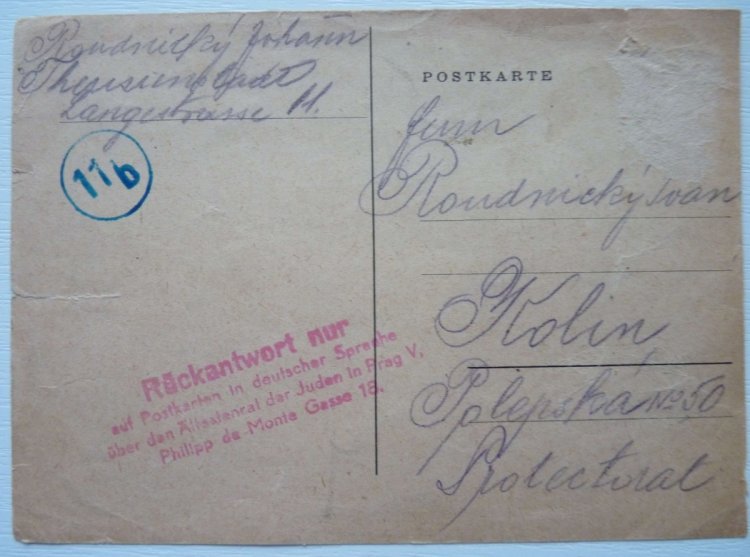 Roudnický Johann
Theresienstadt
Langestrasse 11.
11b
Rückantwort nur
auf Postkarten in deutscher Sprache
über den Ältestenrat der Juden in Prag V,
Philipp de Monte Gasse 18.
POSTKARTE
Roudnický Ivan
Kolin
Polepská No 50
Protectorat